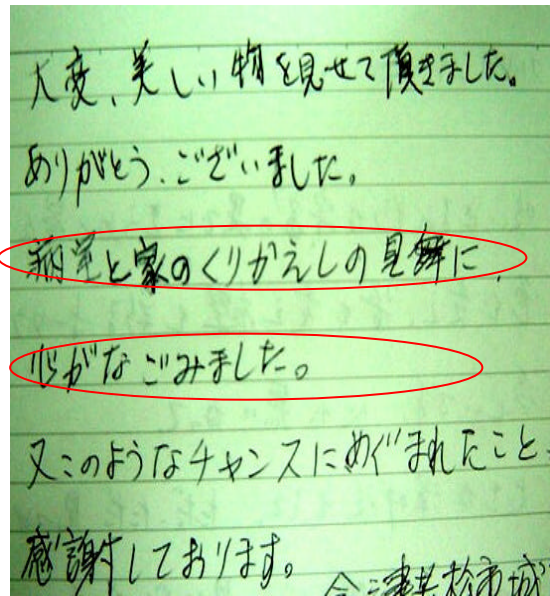 大変、美しい物を見せて頂きました。
ありがとう、ございました。
病室と家のくりかえしの見舞に、
心がなごみました。
又このようなチャンスにめぐまれたこと、
感謝しております。
会津若松市城